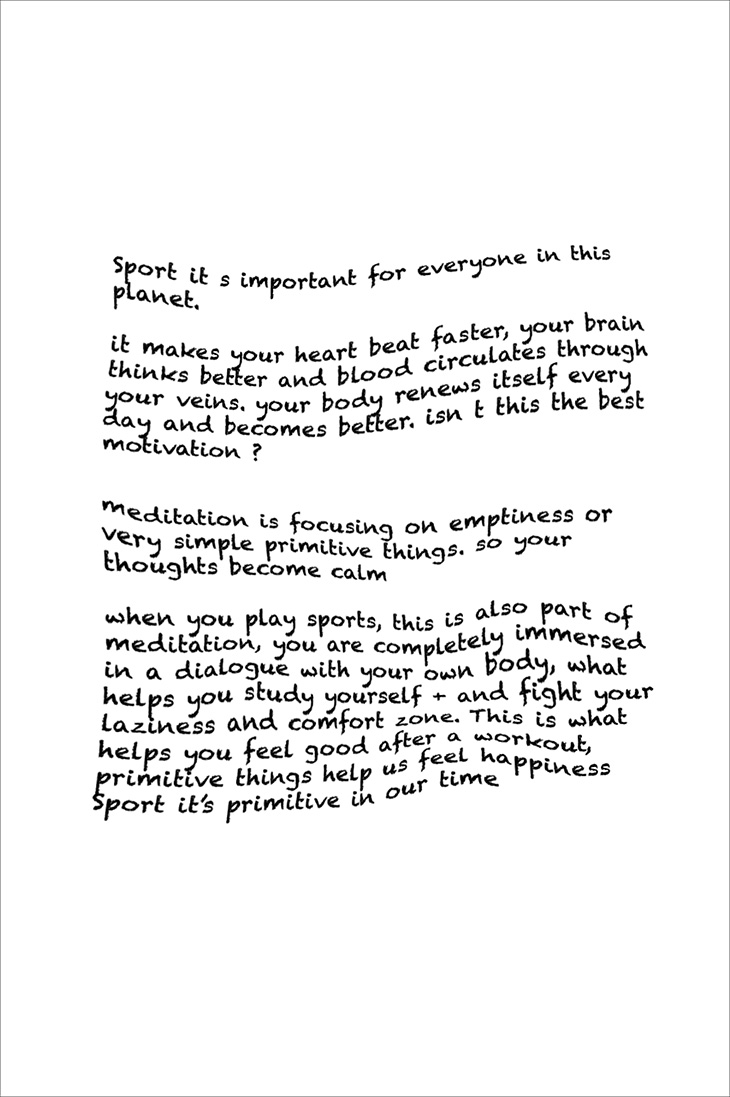 Sport it s important for everyone in this
planet.
it makes your heart beat faster, your brain
thinks better and blood circulates through
your veins. your body renews itself every
day and becomes better. isn t this the best
motivation ?
meditation is focusing on emptiness or
very simple primitive things. so your
thoughts become calm
when you play sports, this is also part of
meditation, you are completely immersed
in a dialogue with your own body, what
helps you study yourself + and fight your
laziness and comfort zone. This is what
helps you feel good after a workout,
primitive things help us feel happiness
Sport it's primitive in our time